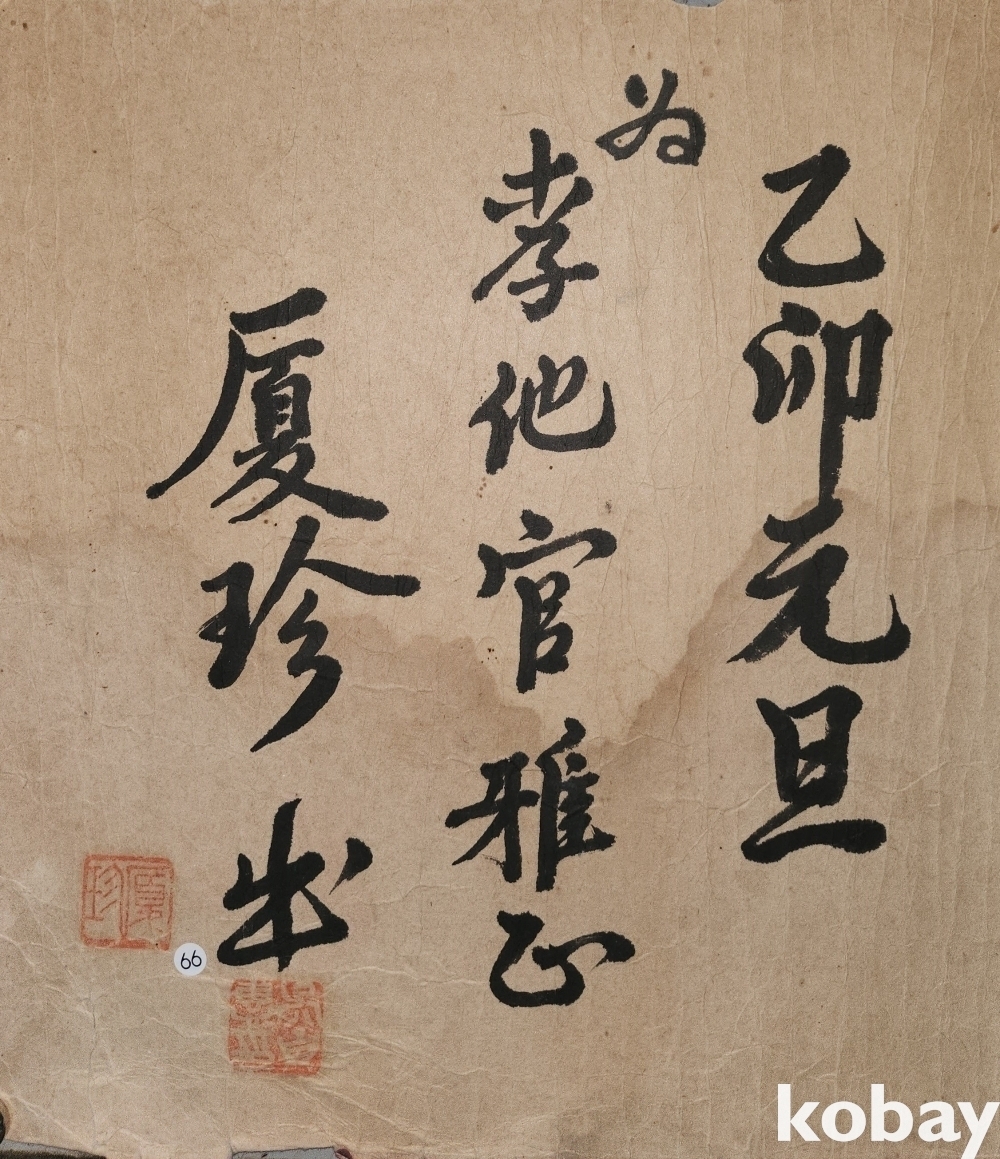 乙卯元旦
为
孝他官雅正
厦珍
厦珍
66
kobay